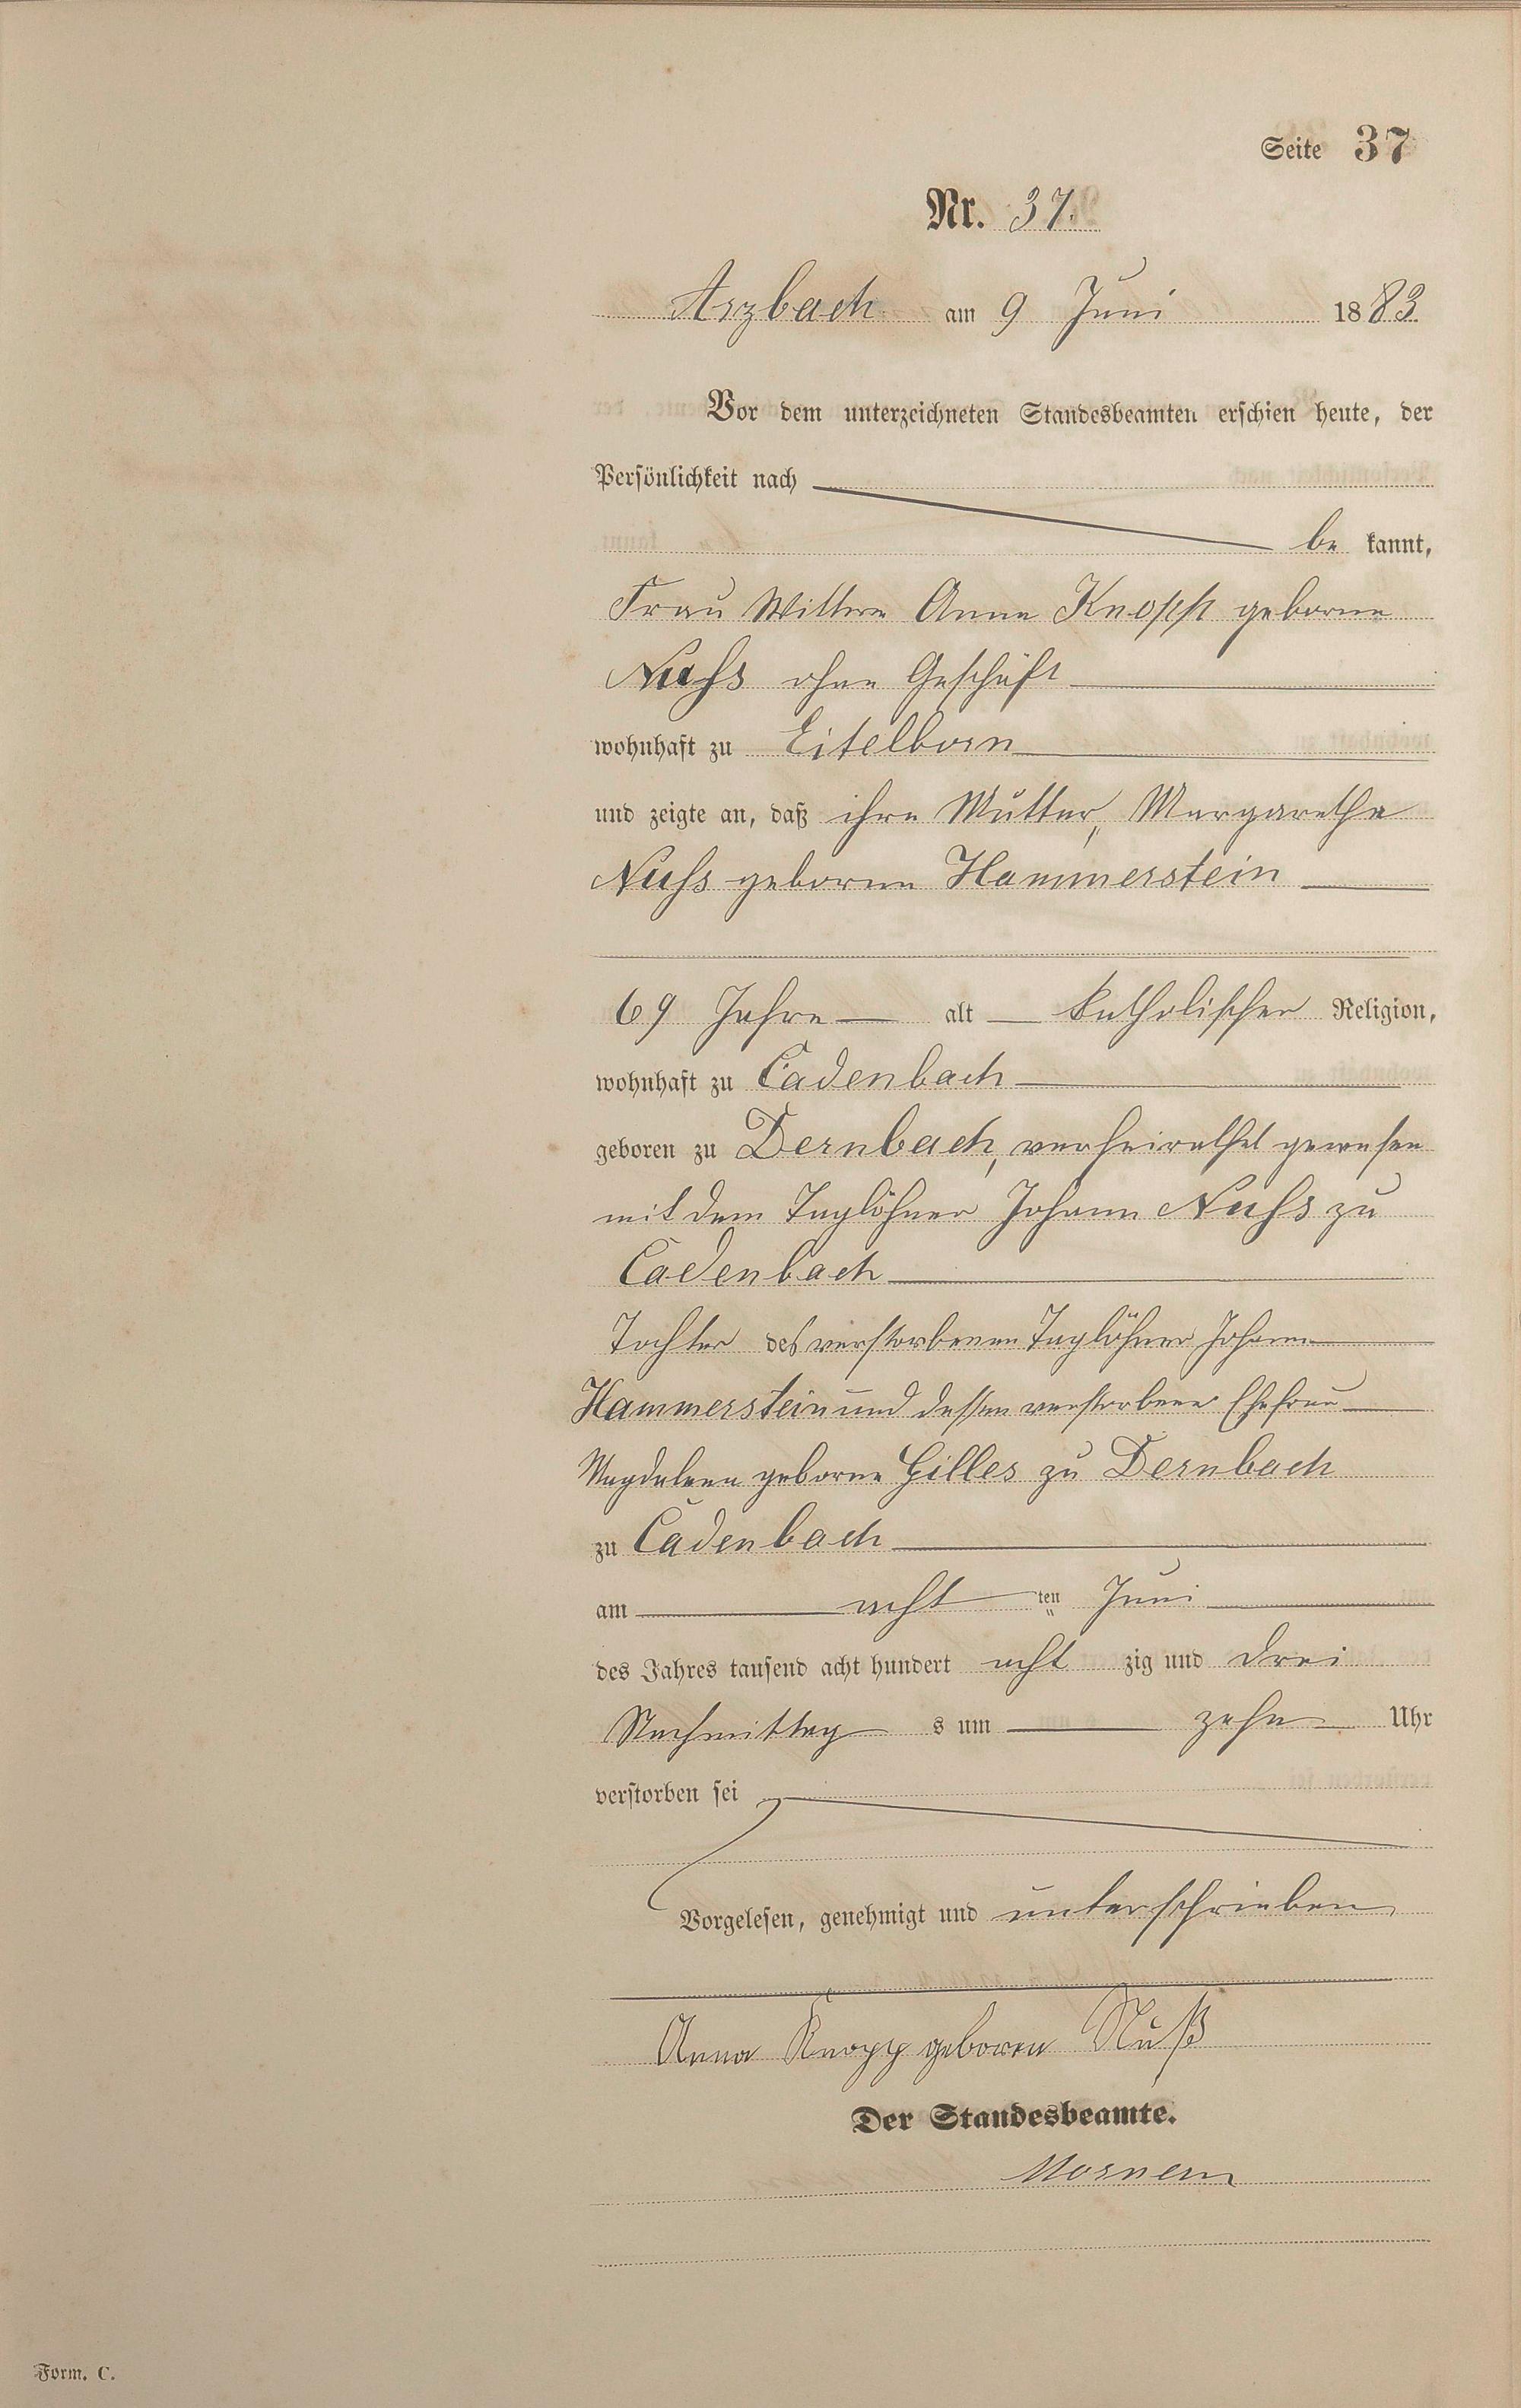 Seite 37
Nr. 37.
Arzbach am 9 Juni 1883
Vor dem unterzeichneten Standesbeamten erschien heute, der
Persönlichkeit nach
be kannt,
Frau Wittwe Anna Knopp geborne
Nuſs ohne Geschäft
wohnhaft zu Eitelborn
und zeigte an, daß ihre Mutter, Margaretha
Nuſs geborne Hammerstein
69 Jahre alt katholischer Religion,
wohnhaft zu Cadenbach
geboren zu Dernbach, verheirathet gewesen
mit dem Taglöhner Johann Nuſs zu
Cadenbach
Tochter des verstorbenen Taglöhner Johann
Hammerstein und dessen verstorbene Ehefrau
Magdalena geborne Gilles zu Dernbach
zu Cadenbach
am acht ten Juni
des Jahres tausend acht hundert acht zig und drei
Nachmittag s um zehn Uhr
verstorben sei
Vorgelesen, genehmigt und unterschrieben
Anna Knopp geboren Nuß
Der Standesbeamte.
Form. C.